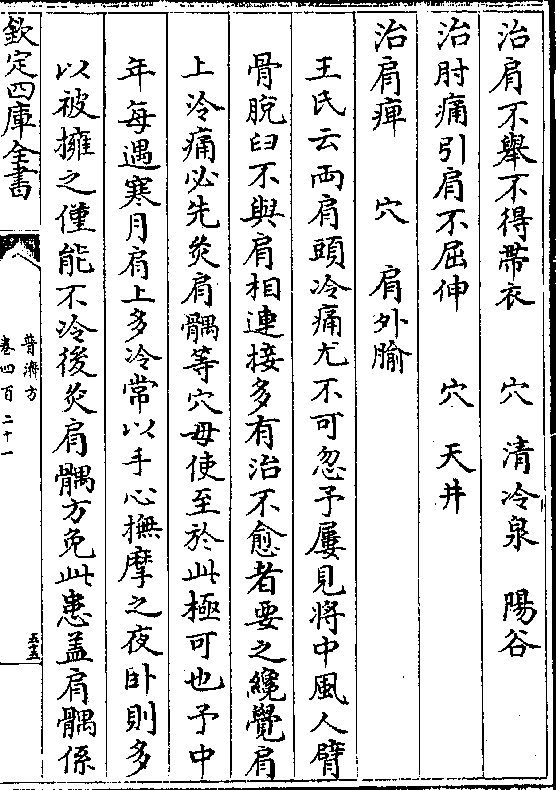 治肩不舉不得帶衣　穴　清冷泉　陽谷
治肘痛引肩不屈伸　穴　天井
治肩痺　穴　肩外腧
王氏云兩肩頭冷痛尤不可忽予屢見將中風人臂
骨脫臼不與肩相連接多有治不愈者要之纔覺肩
上冷痛必先灸肩髃等穴毋使至於此極可也予中
年每遇寒月肩上多冷常以手心撫摩之夜臥則多
以被擁之僅能不冷後灸肩髃方免此患蓋肩髃係
欽定四庫全書
普濟方
卷四百二十一
五五